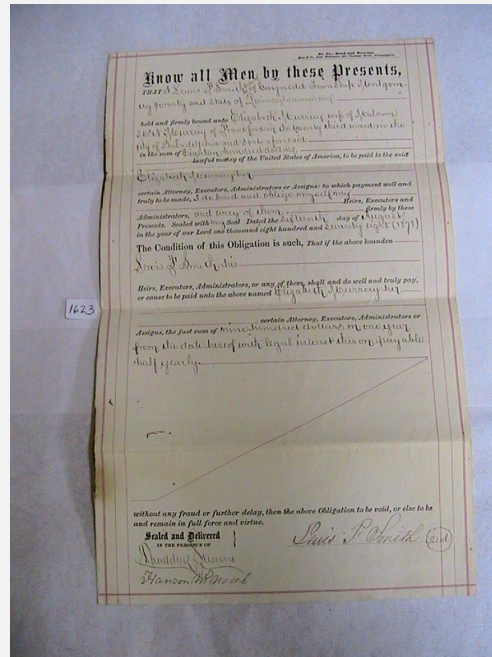 No. 37.—Bond and Warrant
Know all Men by these Presents,
THAT I Lewis P. Smith of Gwynedd Township Montgom
ery County and State of Pennsylvania
held and firmly bound unto Elizabeth Murray wife of Malcom
Murray of Frankford in the twenty third ward in the
city of Philadelphia and State aforesaid
in the sum of Eighteen hundred dollars
lawful money of the United States of America, to be paid to the said
Elizabeth Murray her
certain Attorney, Executors, Administrators or Assigns: to which payment well and
truly to be made, I do bind and oblige myself my Heirs, Executors and
Administrators, and every of them, firmly by these
Presents. Sealed with my Seal Dated the sixteenth day of August
in the year of our Lord one thousand eight hundred and seventy eight (1878)
The Condition of this Obligation is such, That if the above bounden
Lewis P. Smith his
Heirs, Executors, Administrators, or any of them, shall and do well and truly pay,
or cause to be paid unto the above named Elizabeth Murray her
1623
certain Attorney, Executors, Administrators or
Assigns, the just sum of nine hundred dollars in one year
from the date hereof with legal interest thereon payable
half yearly.
without any fraud or further delay, then the above Obligation to be void, or else to be
and remain in full force and virtue.
Sealed and Delivered
IN THE PRESENCE OF
Lewis P. Smith
Seal